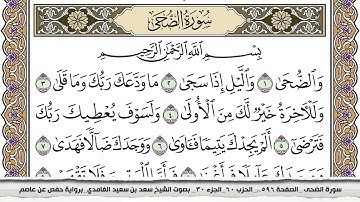 سُورَةُ الضُّحَى
بِسْمِ اللَّهِ الرَّحْمَٰنِ الرَّحِيمِ
وَالضُّحَىٰ ١ وَاللَّيْلِ إِذَا سَجَىٰ ٢ مَا وَدَّعَكَ رَبُّكَ وَمَا قَلَىٰ ٣
وَلَلْآخِرَةُ خَيْرٌ لَّكَ مِنَ الْأُولَىٰ ٤ وَلَسَوْفَ يُعْطِيكَ رَبُّكَ
فَتَرْضَىٰ ٥ أَلَمْ يَجِدْكَ يَتِيمًا فَـَٔاوَىٰ ٦ وَوَجَدَكَ ضَالًّا فَهَدَىٰ ٧
سورة الضحى _الصفحة ٥٩٦_ الحزب ٦٠_الجزء ٣٠_ بصوت الشيخ سعد بن سعيد الغامدي برواية حفص عن عاصم